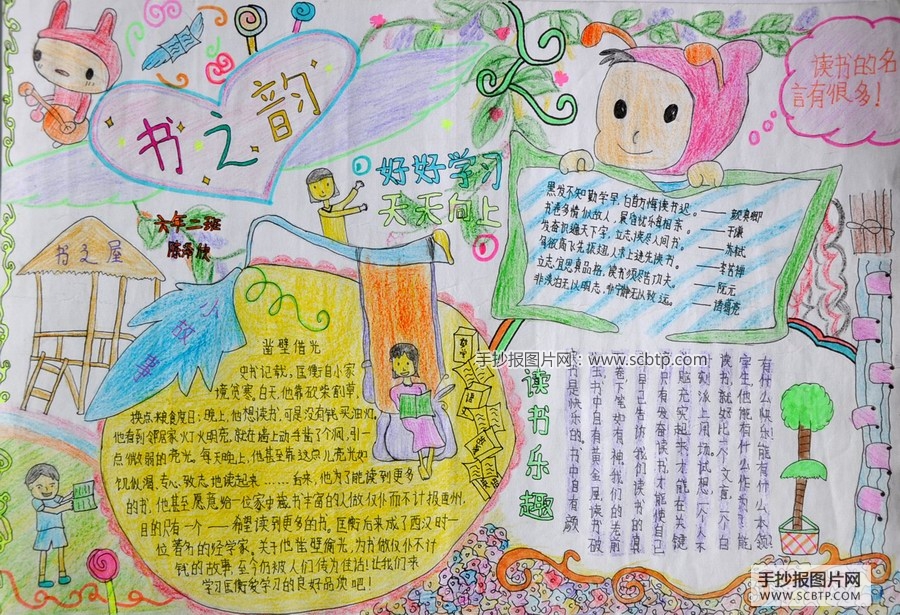 书之韵
好好学习
天天向上
读书的名
言有很多!
六年二班
书之屋
小故事
黑发不知勤学早,白首方悔读书迟。——颜真卿
书卷多情似故人,晨昏忧乐每相亲。——于谦
发奋识遍天下字,立志读尽人间书。——苏轼
立志宜思真品格,读书须尽苦功夫。——阮元
非淡泊无以明志,非宁静无以致远。——诸葛亮
凿壁借光
史书记载,匡衡自小家
境贫寒,白天,他帮别人
换点粮食度日;晚上,他想读书,可是没有钱买油灯,
他看到邻居家灯火明亮,就在墙上动手凿了个洞,引一
点微弱的亮光。每天晚上,他甚至靠这点儿亮光如
饥似渴、专心致志地读起来……后来,他为了能读到更多
的书,他甚至愿意给一位家中藏书丰富的人做仆而不计报酬,
目的只有一个——希望读到更多的书。匡衡后来成了西汉时一
位著名的经学家。关于他凿壁偷光,为书做仆不计
钱的故事,至今仍被人们传为佳话!让我们来
学习匡衡爱学习的良好品质吧!
手抄报图片网:www.scbtp.com
读书乐趣
有什么快乐!能有什么本领!
害生,他能有什么作为?
读书,就好比一个文盲,一个白
刻派上用场。试想,一个人不
脑充实起来,才能在关键
只有发奋读书,才能使自己
早已告诉我们读书的真
卷,下笔如有神,我们的先前
虫,书中自有黄金屋,读书破
读书是快乐的。书中自有颜
手抄报图片网
WWW.SCBTP.COM